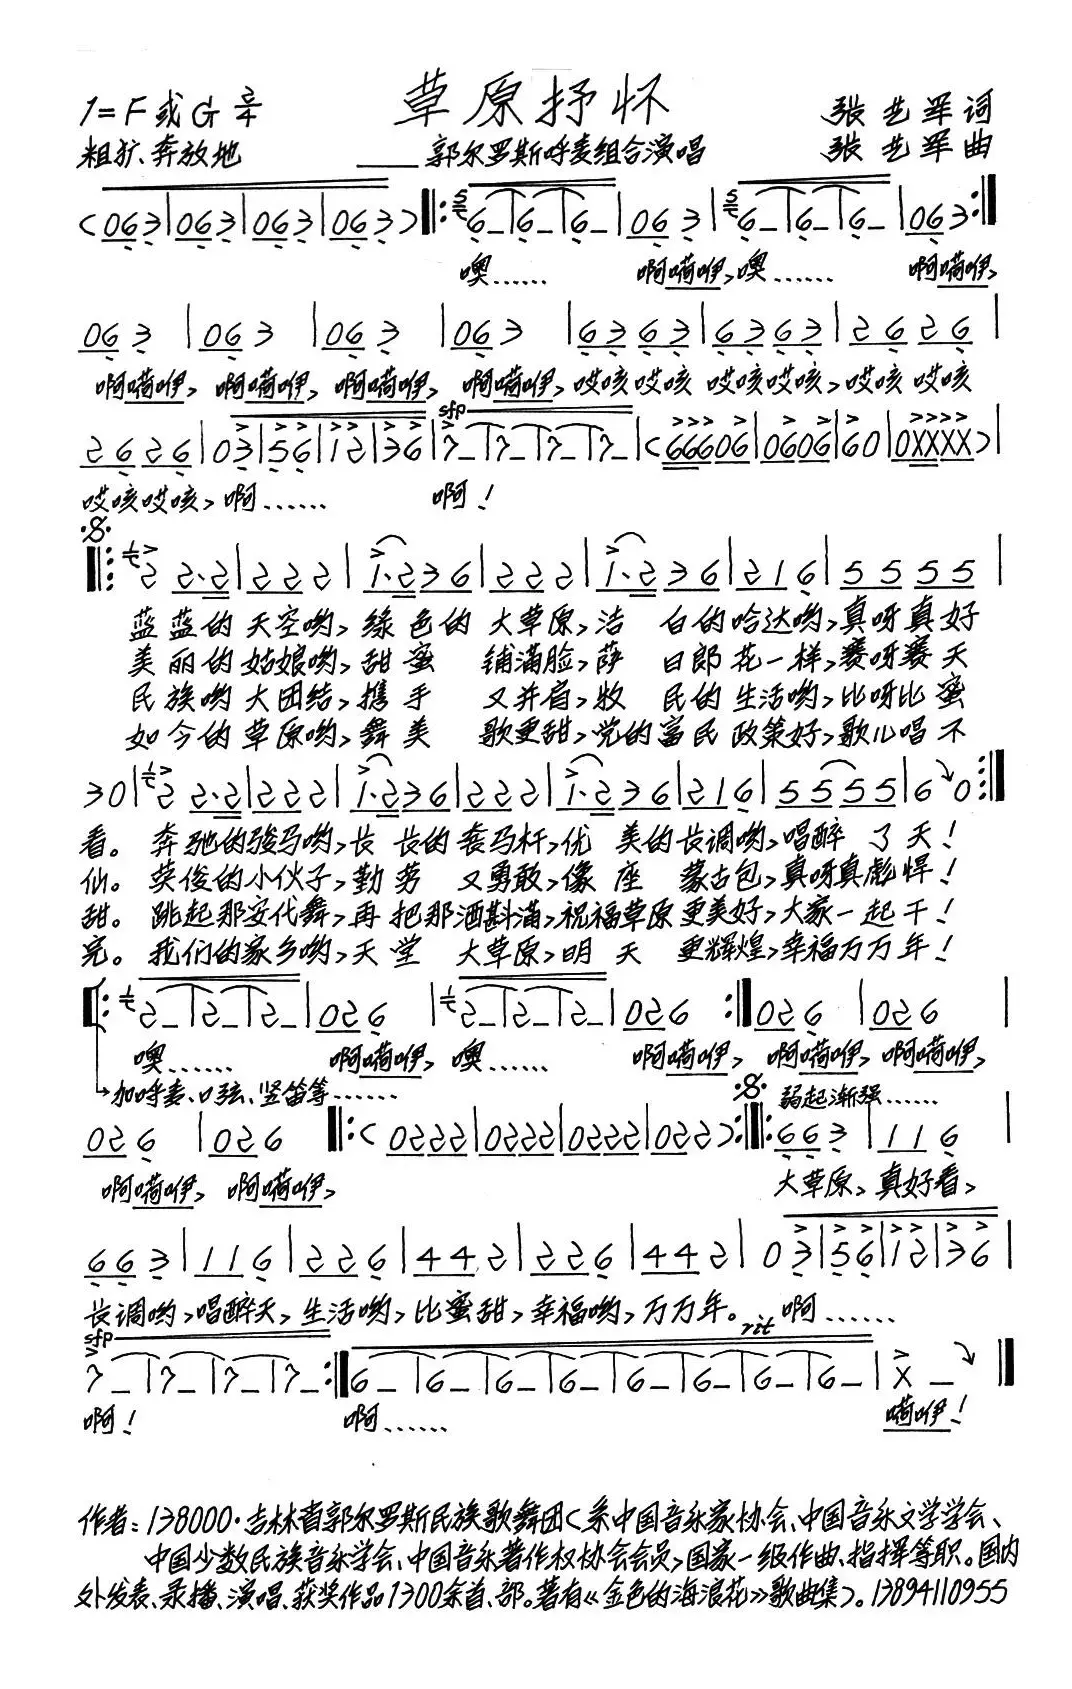 草原抒怀
1=F或G 2/4
张艺军词
粗犷、奔放地
——郭尔罗斯呼麦组合演唱
张艺军曲
(063|063|063|063)‖:6_|6_|6_|063|6_|6_|6_|063:‖
噢…… 啊嗬咿,噢…… 啊嗬咿,
063|063|063|063|6363|6363|2626|
啊嗬咿,啊嗬咿,啊嗬咿,啊嗬咿,哎咳哎咳 哎咳哎咳,哎咳 哎咳
sfp
2626|03|56|12|36|7_|7_|7_|7_|(66606|0606|60|0XXXX)|
哎咳哎咳,啊…… 啊!
‖:2 2·2|222|1·236|222|1·236|216|5555|
蓝蓝的天空哟,绿色的大草原,洁 白的哈达哟,真呀真好
美丽的姑娘哟,甜蜜 铺满脸,萨 日郎花一样,赛呀赛天
民族哟大团结,携手 又并肩,牧 民的生活哟,比呀比蜜
如今的草原哟,舞美 歌更甜,党的富民政策好,歌儿唱不
30|2 2·2|222|1·236|222|1·236|216|5555|60:‖
看。奔驰的骏马哟,长 长的套马杆,优 美的长调哟,唱醉 了天!
仙。英俊的小伙子,勤劳 又勇敢,像座 蒙古包,真呀真彪悍!
甜。跳起那安代舞,再把那酒斟满,祝福草原更美好,大家一起干!
完。我们的家乡哟,天堂 大草原,明天 更辉煌,幸福万万年!
‖:2_|2_|2_|026|2_|2_|2_|026:‖026|026|
噢…… 啊嗬咿,噢…… 啊嗬咿,啊嗬咿,啊嗬咿,
加呼麦、口弦、竖笛等……
弱起渐强……
026|026‖:(0222|0222|0222|022):‖:663|116|
啊嗬咿,啊嗬咿, 大草原,真好看,
663|116|226|442|226|442|03|56|12|36|
长调哟,唱醉天,生活哟,比蜜甜,幸福哟,万万年。 啊……
sfp
rit
7_|7_|7_|7_:‖6_|6_|6_|6_|6_|6_|6_|6_|X_‖
啊! 啊…… 嗬咿!
作者:138000·吉林省郭尔罗斯民族歌舞团(系中国音乐家协会、中国音乐文学学会、
中国少数民族音乐学会、中国音乐著作权协会会员,国家一级作曲、指挥等职。国内
外发表、录播、演唱、获奖作品1300余首、部。著有《金色的海浪花》歌曲集)。13894110955